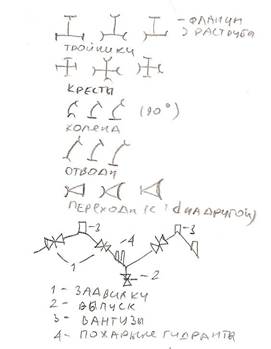 – ФЛАНЦИ
Ͻ РАСТРУБА
ТРОЙНИКИ
КРЕСТЫ
(90°)
КОЛЕНА
ОТВОДИ
ПЕРЕХОДИ (С 1 d НА ДРУГОЙ)
3
3
4
1
2
1 – ЗАДВИЖКИ
2 – ВЫПУСК
3 – ВАНТУЗЫ
4 – ПОЖАРНЫЕ ГИДРАНТЫ